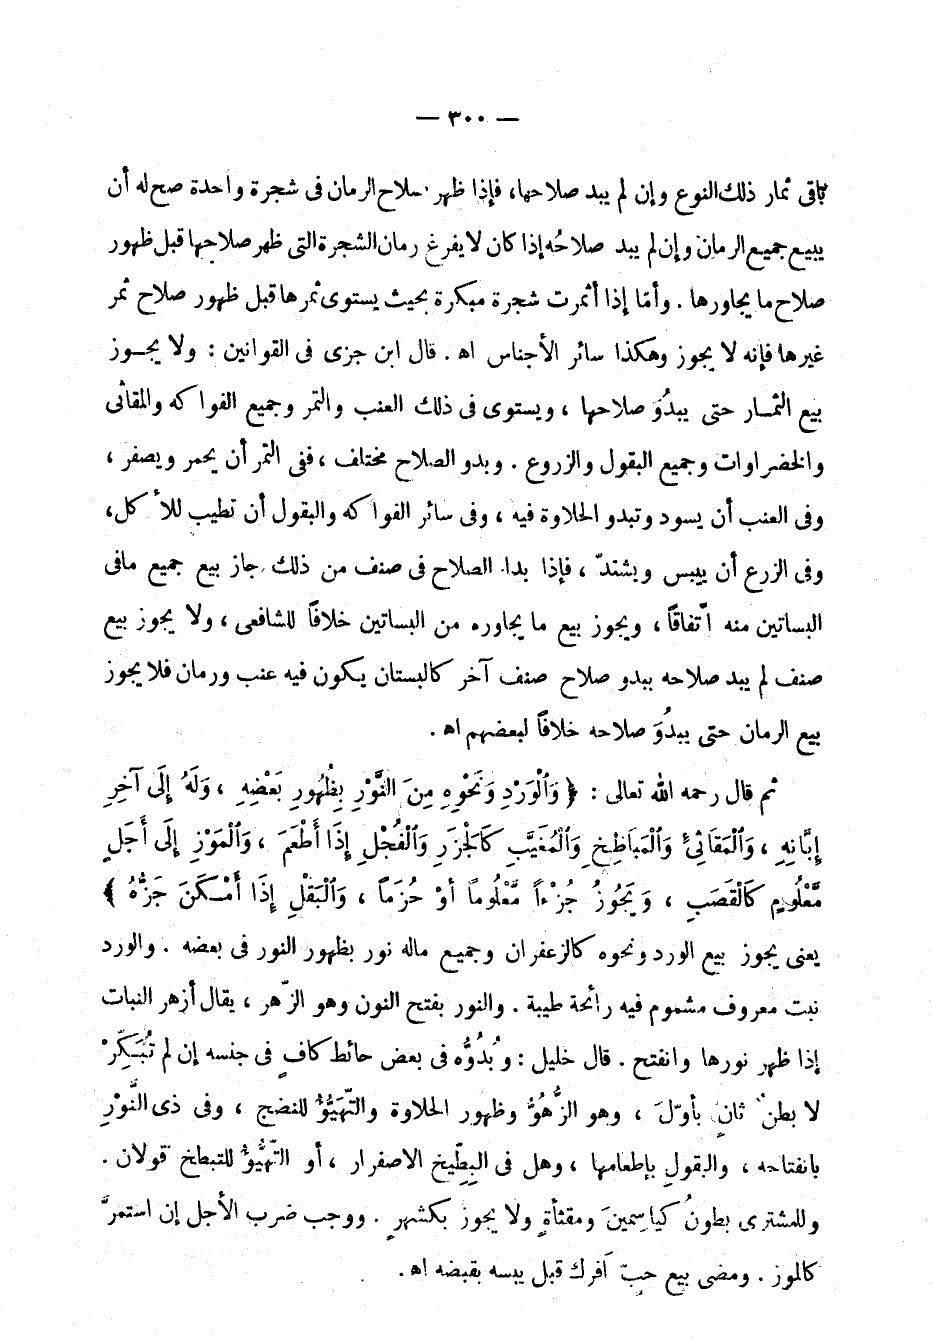 — ٣٠٠ —
باقى ثمار ذلك النوع وإن لم يبد صلاحها، فإذا ظهر صلاح الرمان فى شجرة واحدة صح له أن
يبيع جميع الرمان وإن لم يبد صلاحُه إذا كان لا يفرغ رمان الشجرة التى ظهر صلاحها قبل ظهور
صلاح ما يجاورها . وأمّا إذا أثمرت شجرة مبكرة بحيث يستوى ثمرها قبل ظهور صلاح ثمر
غيرها فإنه لا يجوز وهكذا سائر الأجناس اه . قال ابن جزى فى القوانين : ولا يجــوز
بيع الثمــار حتى يبدُوَ صلاحها ، ويستوى فى ذلك العنب والتمر وجميع الفواكه والمقاثى
والخضراوات وجميع البقول والزروع . وبدو الصلاح مختلف ، ففى التمر أن يحمر ويصفر ،
وفى العنب أن يسود وتبدو الحلاوة فيه ، وفى سائر الفواكه والبقول أن تطيب للأكل،
وفى الزرع أن ييبس ويشتدّ ، فإذا بدا الصلاح فى صنف من ذلك جاز بيع جميع مافى
البساتين منه اتّفاقاً ، ويجوز بيع ما يجاوره من البساتين خلافاً للشافعى ، ولا يجوز بيع
صنف لم يبد صلاحه ببدو صلاح صنف آخر كالبستان يكون فيه عنب ورمان فلا يجوز
بيع الرمان حتى يبدُوَ صلاحه خلافاً لبعضهم اه .
ثم قال رحمه الله تعالى : ﴿ وَالْوَرْدِ وَنَحْوِهِ مِنَ النَّوْرِ بِظُهُورِ بَعْضِهِ ، وَلَهُ إِلَى آخِرِ
إِبَّانِهِ ، وَالْمَقَاثِئِ وَالْمَبَاطِخِ وَالْمُغَيَّبِ كَالْجَزَرِ وَالْفُجْلِ إِذَا أَطْعَمَ ، وَالْمَوْزِ إِلَى أَجَلٍ
مَّعْلُومٍ كَالْقَصَبِ ، وَيَجُوزُ جُزْءاً مَّعْلُوماً أَوْ حُزَماً ، وَالْبَقْلِ إِذَا أَمْـكَنَ جَزُّهُ ﴾
يعنى يجوز بيع الورد ونحوه كالزعفران وجميع ماله نور بظهور النور فى بعضه . والورد
نبت معروف مشموم فيه رائحة طيبة . والنور بفتح النون وهو الزّهر ، يقال أزهر النبات
إذا ظهر نورها وانفتح . قال خليل : وبُدُوُّه فى بعض حائط كافٍ فى جنسه إن لم تُبَكِّرْ
لا بطنٌ ثانٍ بأوّلَ ، وهو الزُّهُوُّ وظهور الحلاوة والتَّهَيُّؤُ للنضج ، وفى ذى النَّوْرِ
بانفتاحه ، والبقولِ بإطعامها ، وهل فى البِطِّيخ الاصفرار ، أو التَّهيُّؤُ للتبطخ قولان .
وللمشترى بطونُ كياسِمينَ ومقثأةٍ ولا يجوز بكشهرٍ . ووجب ضرب الأجل إن استمرَّ
كالموز . ومضى بيع حبّ أفرك قبل يبسه بقبضه اه .